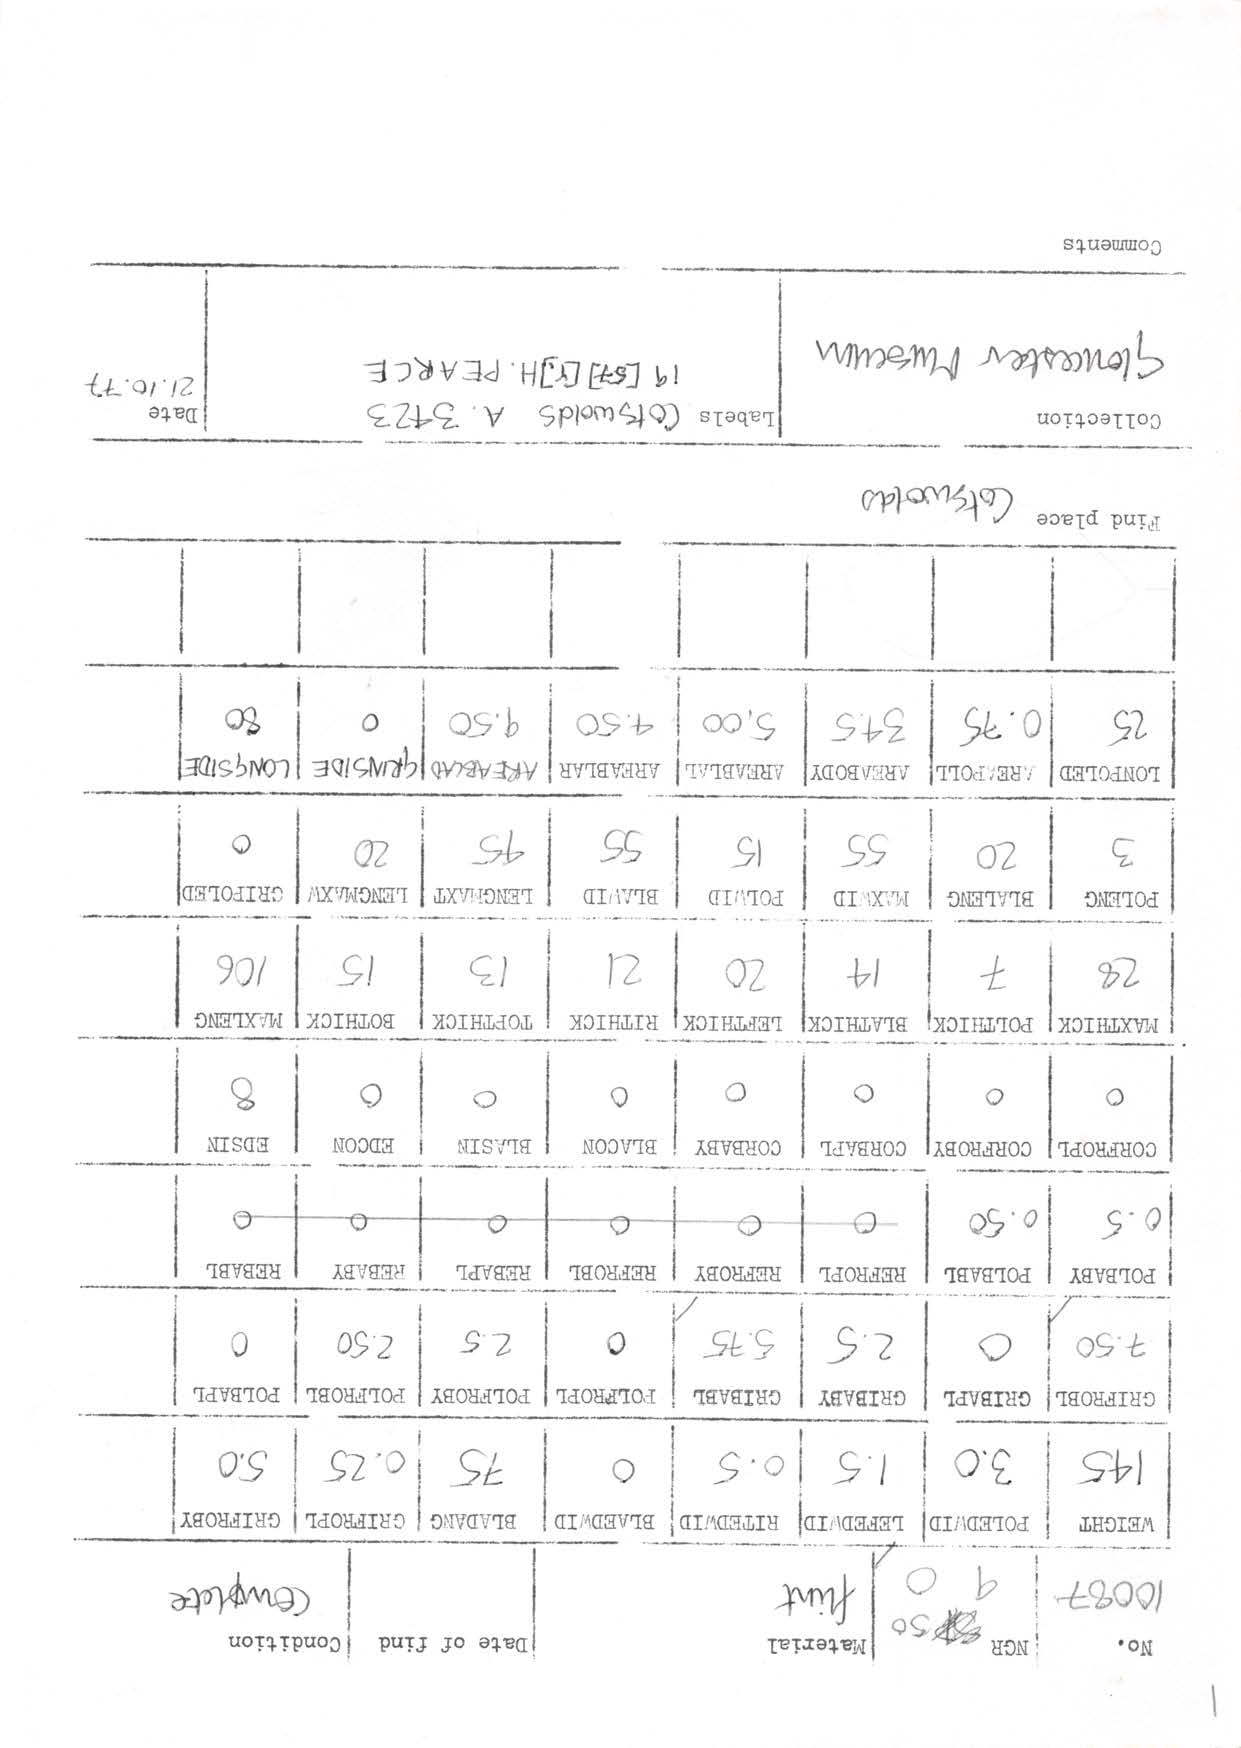 1
No. NGR Material Date of find Condition
10087 50 flint Complete
9 0
WEIGHT POLEDWID LEFEDWID RITEDWID BLAEDWID BLADANG GRIFROPL GRIFROBY
145 3.0 1.5 0.5 0 75 0.25 5.0
GRIFROBL GRIBAPL GRIBABY GRIBABL POLFROPL POLFROBY POLFROBL POLBAPL
7.50 0 2.5 5.75 0 2.5 2.50 0
POLBABY POLBABL REFROPL REFROBY REFROBL REBAPL REBABY REBABL
0.5 0.50 0 0 0 0 0 0
CORFROPL CORFROBY CORBAPL CORBABY BLACON BLASIN EDCON EDSIN
0 0 0 0 0 0 0 8
MAXTHICK POLTHICK BLATHICK LEFTHICK RITHICK TOPTHICK BOTHICK MAXLENG
28 7 14 20 21 13 15 106
POLENG BLALENG MAXWID POLWID BLAWID LENGMAXT LENGMAXW GRIPOLED
3 20 55 15 55 45 20 0
LONPOLED AREAPOLL AREABODY AREABLAL AREABLAR AREABLAD GRINSIDE LONGSIDE
25 0.75 34.5 5.00 4.50 9.50 0 80
Find place Cotswolds
Collection Labels Cotswolds A. 3423 Date
Gloucester Museum 19 [57] [Y] H. PEARCE 21.10.77
Comments